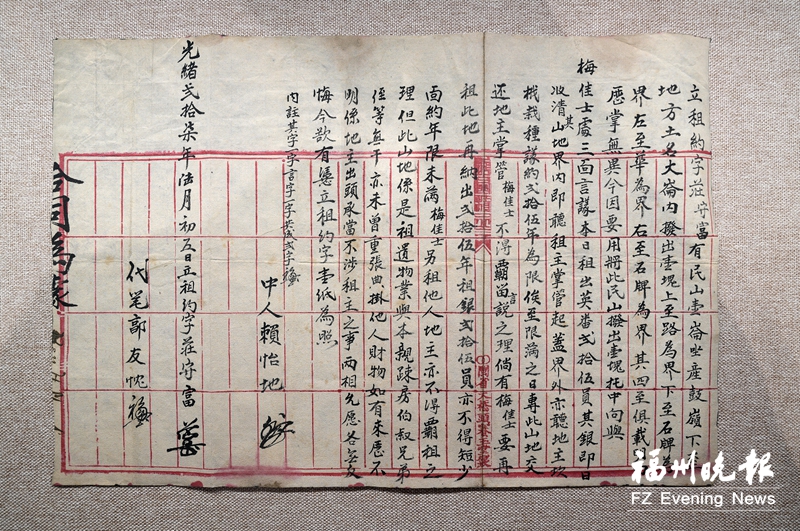 立租約字莊守富有民山壹崙坐產鼓嶺下
地方土名大崙內撥出壹塊上至路為界下至石牌為
界左至華為界右至石牌為界其四至俱載
歷掌無異今因要用將此民山撥出壹塊托中向與
梅佳士處三面言議本日租出英番弍拾伍員其銀即日
收清其山地界內即聽租主掌管起蓋界外亦聽地主砍
栽種議約弍拾伍年為限俟至限滿之日專此山地交
还地主掌管梅佳士不得霸留言說之理倘有梅佳士要再
租此地再納出弍拾伍年租銀弍拾伍員亦不得短少
面約年限未滿梅佳士另租他人地主亦不得霸租之
理但此山地係是祖遺物業與本親疎房伯叔兄弟
侄等無干亦未曾重張典掛他人財物如有來歷不
明係地主出頭承當不涉租主之事兩相允愿各無反
悔今欲有憑立租約字壹紙為照
內註其字一字言字一字共弍字
中人賴怡地
光緒弍拾柒年陆月初五日立租約字莊守富
代笔郭友忱
合同約據
福州晚报
FZ Evening News